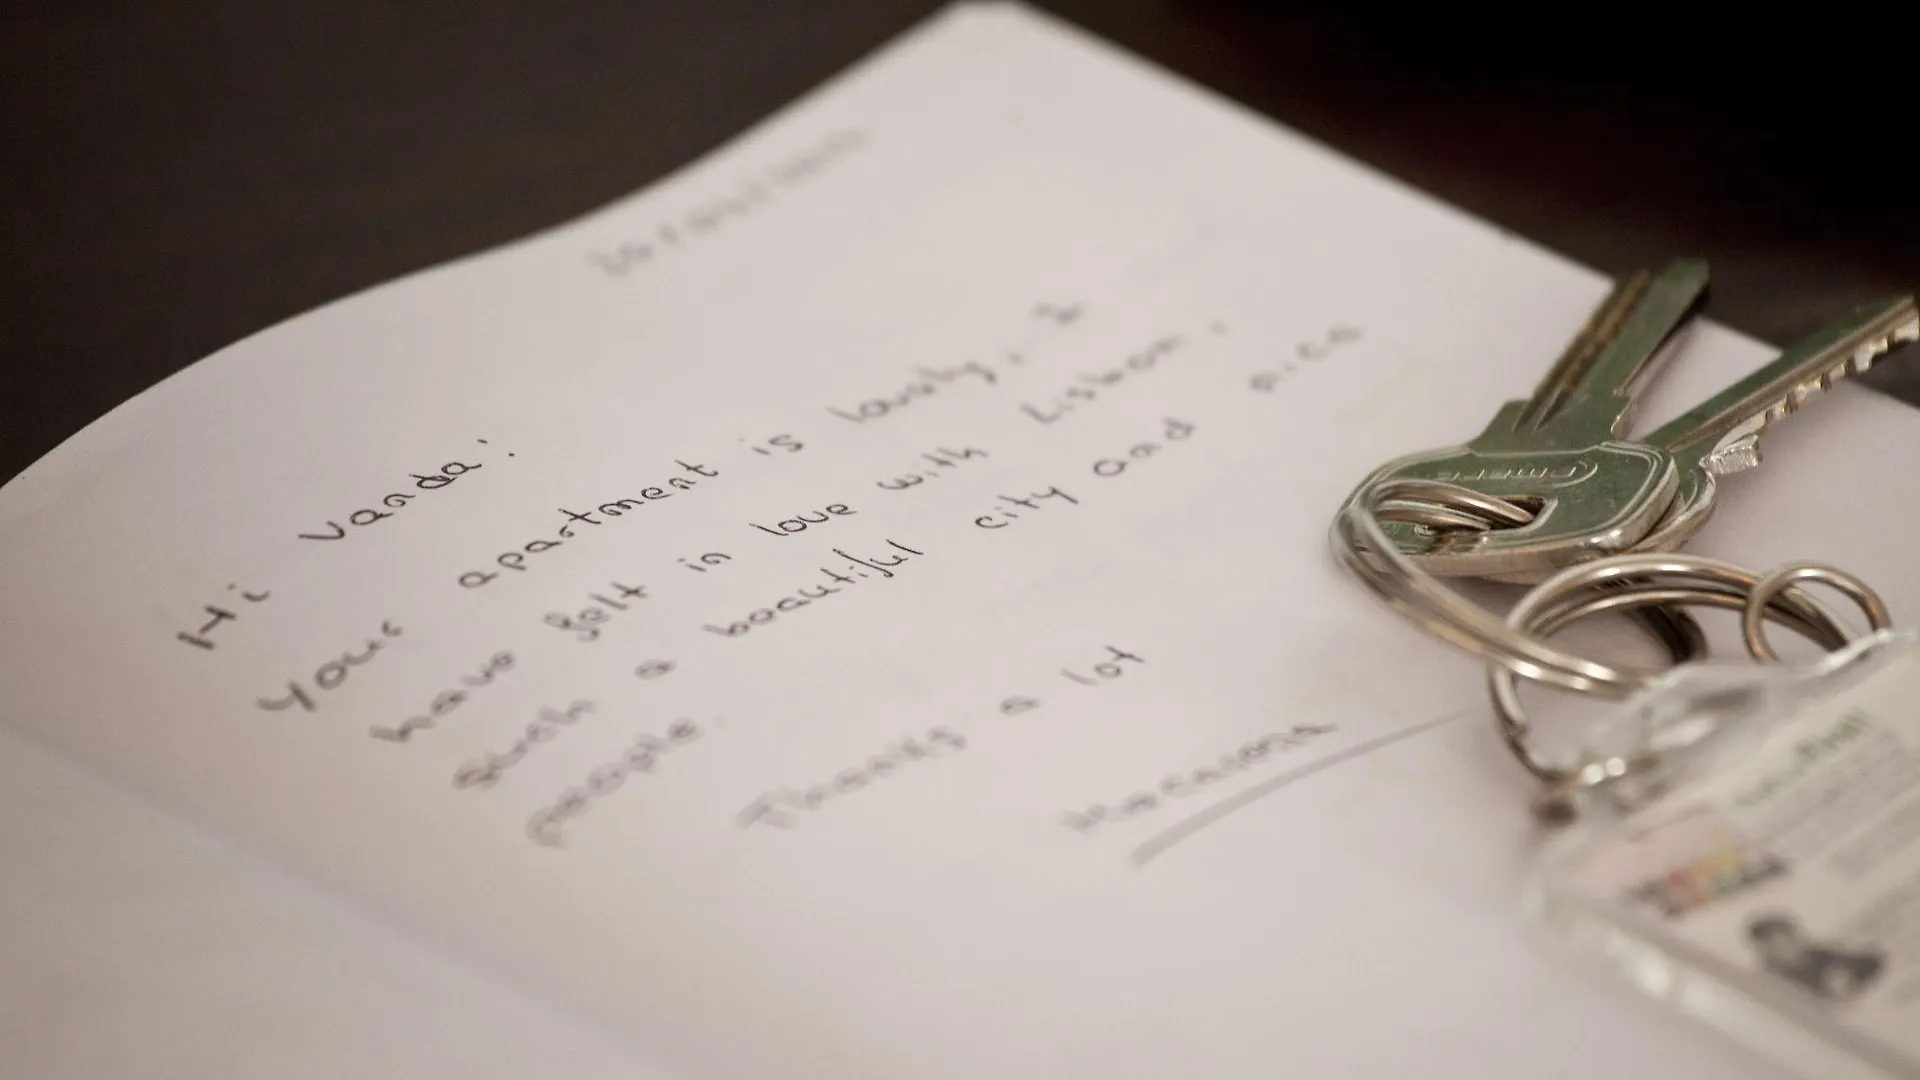 Hi Vanda:
Your apartment is lovely, I
have felt in love with Lisbon,
such a beautiful city and nice
people.
Thanks a lot
Macarena